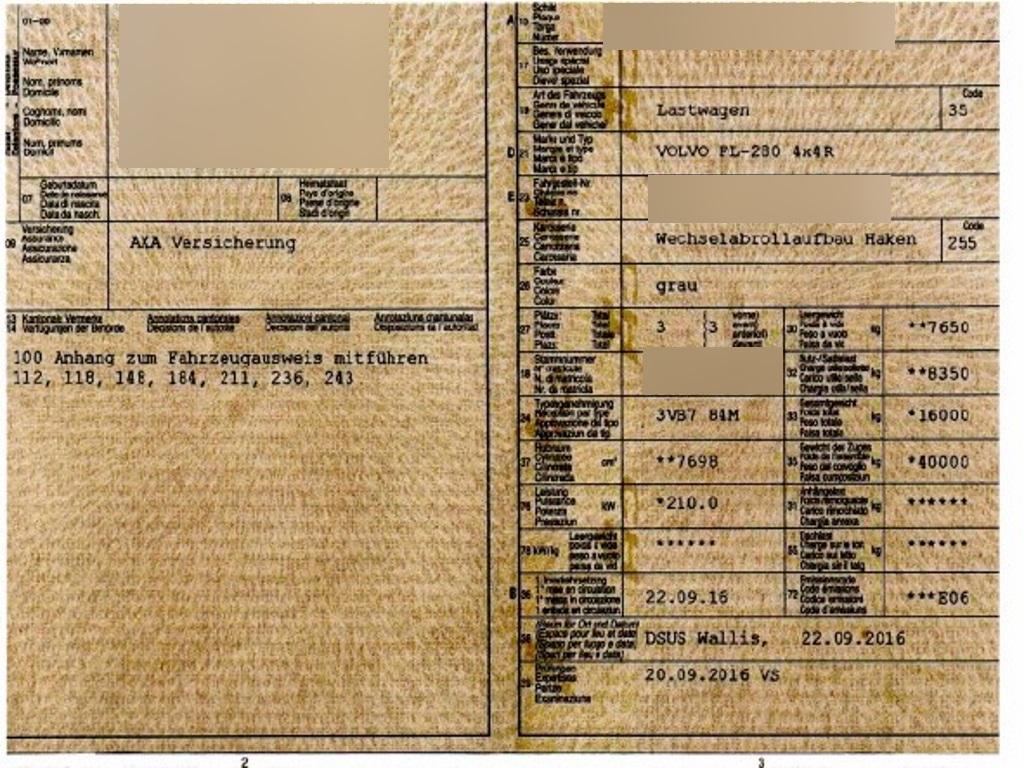 01-00
Name, Vornamen
Wohnort
Nom, prénoms
Domicile
Cognomi, nomi
Domicilio
Num, prenums
Domicil
07
Geburtsdatum
Date de naissance
Data di nascita
Data da nasch.
08
Heimatstaat
Pays d'origine
Paese d'origine
Stadi d'origin
09
Versicherung
Assurance
Assicurazione
Assicuranza
AXA Versicherung
Kantonale Vermerke
Verfügungen der Behörde
Annotations cantonales
Décisions de l'autorité
Annotazioni cantonali
Decisioni dell'autorità
Annotaziuns chantunalas
Disposiziuns da l'autoritad
100 Anhang zum Fahrzeugausweis mitführen
112, 118, 148, 184, 211, 236, 243
2
A
15
Schild
Plaque
Targa
Numer
17
Bes. Verwendung
Usage spécial
Uso speciale
Diever spezial
19
Art des Fahrzeugs
Genre de véhicule
Genere di veicolo
Gener dal vehichel
Lastwagen
Code
35
D
21
Marke und Typ
Marque et type
Marca e tipo
Marca e tip
VOLVO FL-280 4x4R
E
23
Fahrgestell-Nr.
25
Karosserie
Carrosserie
Carrozzeria
Carossaria
Wechselabrollaufbau Haken
Code
255
26
Farbe
Couleur
Colore
Colur
grau
27
Plätze: Total
Places: Total
Posti: Totale
Plazs: Total
3 (3
vorne)
avant)
anteriori)
davant)
30
Leergewicht
Poids à vide
Peso a vuoto
Paisa da vid
kg
**7650
18
Stammnummer
N° matricule
N. di matricola
Nr. da matricla
32
Nutz-/Sattellast
kg
**8350
24
Typengenehmigung
Réception par type
Approvazione del tipo
Approvaziun da tip
3VB7 84M
33
Gesamtgewicht
Poids total
Peso totale
Paisa totala
kg
*16000
37
Hubraum
Cylindrée
Cilindrata
Cilindrada
cm³
**7698
35
Gewicht des Zuges
kg
*40000
76
Leistung
Puissance
Potenza
Prestaziun
kW
*210.0
31
Anhängelast
kg
******
78 kW/kg
Leergewicht
poids à vide
peso a vuoto
paisa da vid
******
55
Dachlast
kg
******
B
36
1. Inverkehrsetzung
1re mise en circulation
1a messa in circolazione
22.09.16
72
Emissionscode
Code émissions
Codice emissioni
Code d'emissiuns
***E06
38
(Raum für Ort und Datum)
(Espace pour lieu et date)
(Spazio per luogo e data)
(Spazi per lieu e data)
DSUS Wallis, 22.09.2016
39
Prüfungen
Expertises
Perizie
Examinaziuns
20.09.2016 VS
3